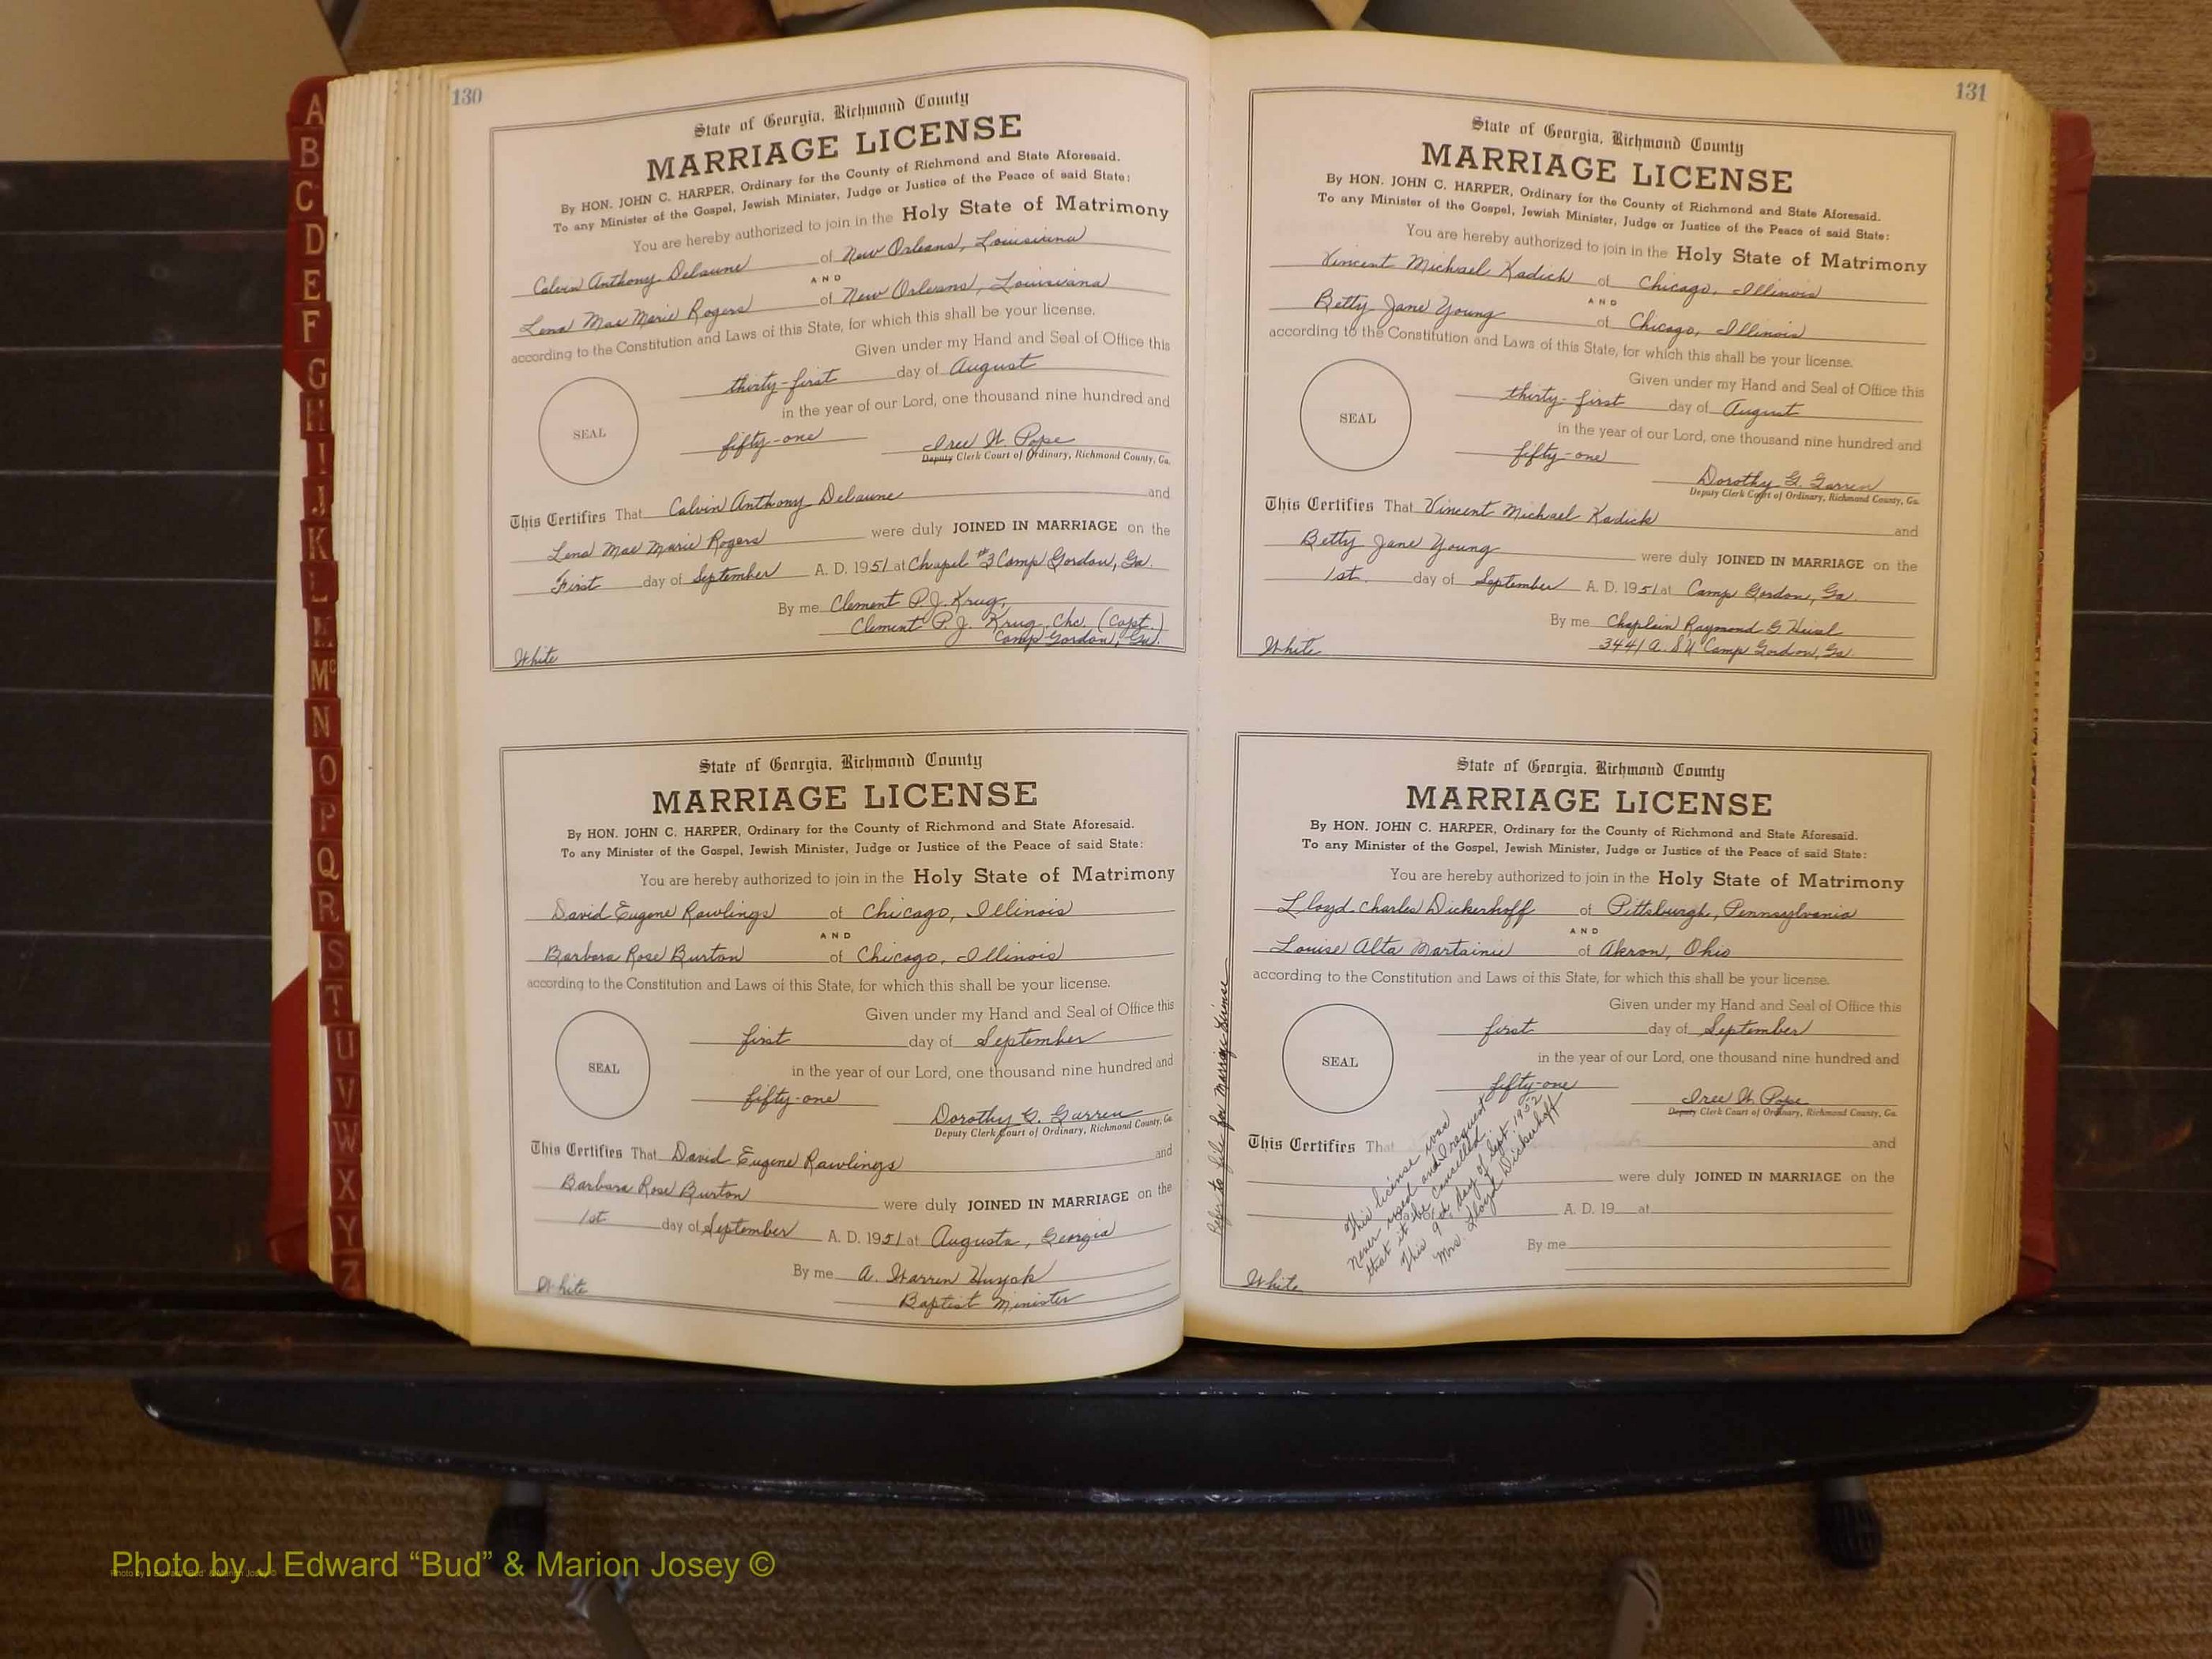 130
State of Georgia, Richmond County
MARRIAGE LICENSE
By HON. JOHN C. HARPER, Ordinary for the County of Richmond and State Aforesaid.
To any Minister of the Gospel, Jewish Minister, Judge or Justice of the Peace of said State:
You are hereby authorized to join in the Holy State of Matrimony
Calvin Anthony Delaune of New Orleans, Louisiana
AND
Lena Mae Marie Rogers of New Orleans, Louisiana
according to the Constitution and Laws of this State, for which this shall be your license.
Given under my Hand and Seal of Office this
thirty-first day of August
in the year of our Lord, one thousand nine hundred and
SEAL
fifty-one Iree W. Pope
Deputy Clerk Court of Ordinary, Richmond County, Ga.
This Certifies That Calvin Anthony Delaune and
Lena Mae Marie Rogers were duly JOINED IN MARRIAGE on the
First day of September A. D. 1951 at Chapel #3 Camp Gordon, Ga.
By me Clement P. J. Krug,
Clement P. J. Krug, Chc. (Capt.)
Camp Gordon, Ga.
White
State of Georgia, Richmond County
MARRIAGE LICENSE
By HON. JOHN C. HARPER, Ordinary for the County of Richmond and State Aforesaid.
To any Minister of the Gospel, Jewish Minister, Judge or Justice of the Peace of said State:
You are hereby authorized to join in the Holy State of Matrimony
David Eugene Rawlings of Chicago, Illinois
AND
Barbara Rose Burton of Chicago, Illinois
according to the Constitution and Laws of this State, for which this shall be your license.
Given under my Hand and Seal of Office this
first day of September
in the year of our Lord, one thousand nine hundred and
SEAL
fifty-one Dorothy G. Garren
Deputy Clerk Court of Ordinary, Richmond County, Ga.
This Certifies That David Eugene Rawlings and
Barbara Rose Burton were duly JOINED IN MARRIAGE on the
1st day of September A. D. 1951 at Augusta, Georgia
By me A. Warren Huyck
Baptist Minister
White
131
State of Georgia, Richmond County
MARRIAGE LICENSE
By HON. JOHN C. HARPER, Ordinary for the County of Richmond and State Aforesaid.
To any Minister of the Gospel, Jewish Minister, Judge or Justice of the Peace of said State:
You are hereby authorized to join in the Holy State of Matrimony
Vincent Michael Kadich of Chicago, Illinois
AND
Betty Jane Young of Chicago, Illinois
according to the Constitution and Laws of this State, for which this shall be your license.
Given under my Hand and Seal of Office this
thirty-first day of August
in the year of our Lord, one thousand nine hundred and
SEAL
fifty-one
Dorothy G. Garren
Deputy Clerk Court of Ordinary, Richmond County, Ga.
This Certifies That Vincent Michael Kadich and
Betty Jane Young were duly JOINED IN MARRIAGE on the
1st day of September A. D. 1951 at Camp Gordon, Ga.
By me Chaplain Raymond G
3441 A. S U Camp Gordon, Ga.
White
State of Georgia, Richmond County
MARRIAGE LICENSE
By HON. JOHN C. HARPER, Ordinary for the County of Richmond and State Aforesaid.
To any Minister of the Gospel, Jewish Minister, Judge or Justice of the Peace of said State:
You are hereby authorized to join in the Holy State of Matrimony
Lloyd Charles Dickerhoff of Pittsburgh, Pennsylvania
AND
Louise Alta of Akron, Ohio
according to the Constitution and Laws of this State, for which this shall be your license.
Given under my Hand and Seal of Office this
first day of September
in the year of our Lord, one thousand nine hundred and
SEAL
fifty-one
Iree W. Pope
Deputy Clerk Court of Ordinary, Richmond County, Ga.
This Certifies That and
were duly JOINED IN MARRIAGE on the
day of A. D. 19 at
By me
This license was
never used and I request
that it be cancelled.
This 9th day of Sept. 1952
Mrs. Lloyd Dickerhoff
White
Refer to file for Marriage License
A
B
C
D
E
F
G
H
I
J
K
L
M
Mc
N
O
P
Q
R
S
T
U
V
W
X
Y
Z
Photo by J Edward “Bud” & Marion Josey ©
Photo by J Edward “Bud” & Marion Josey ©